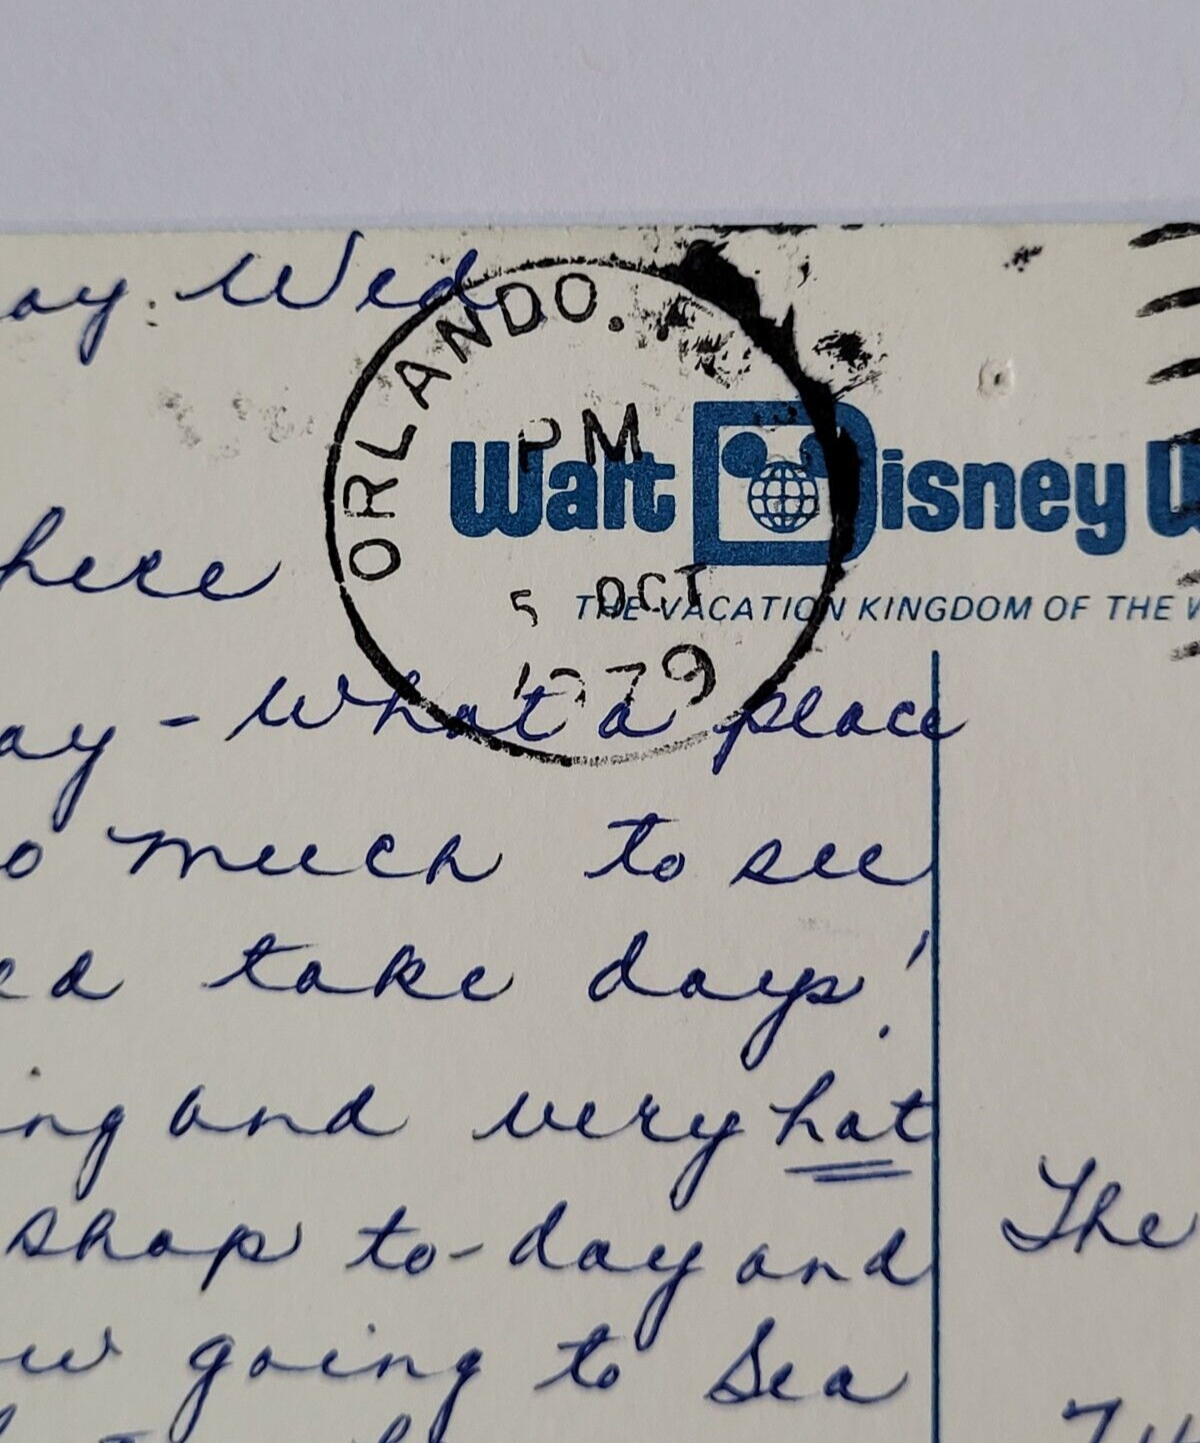 ay. Wed
ORLANDO.
PM
5 OCT
1979
Walt Disney W
THE VACATION KINGDOM OF THE W
here
ay - What a place
o much to see
ed take days!
ing and very hot
shop to-day and
ow going to Sea
The